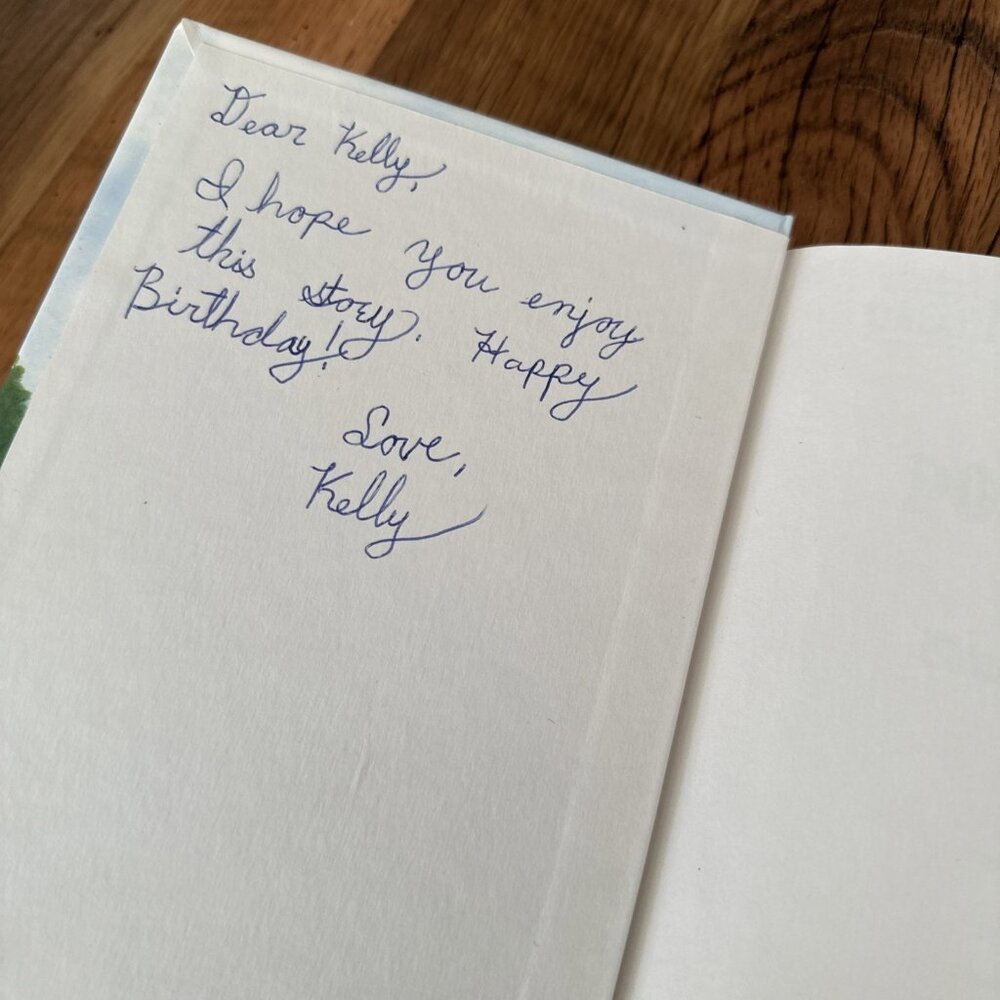 Dear Kelly,
I hope you enjoy
this story. Happy
Birthday!
Love,
Kelly